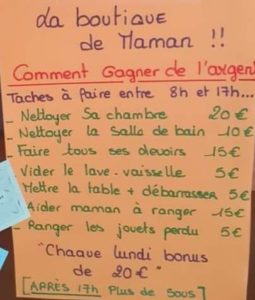 La boutique
de Maman !!
Comment Gagner de l'argent
Taches à faire entre 8h et 17h...
_ Nettoyer Sa chambre 20€
_ Nettoyer la Salle de bain 10€
_ Faire tous ses devoirs 15€
_ Vider le lave-vaisselle 5€
_ Mettre la table + débarrasser 5€
_ Aider maman à ranger 15€
_ Ranger les jouets perdu 5€
"Chaque lundi bonus
de 20€"
[APRÈS 17h Plus de Sous]